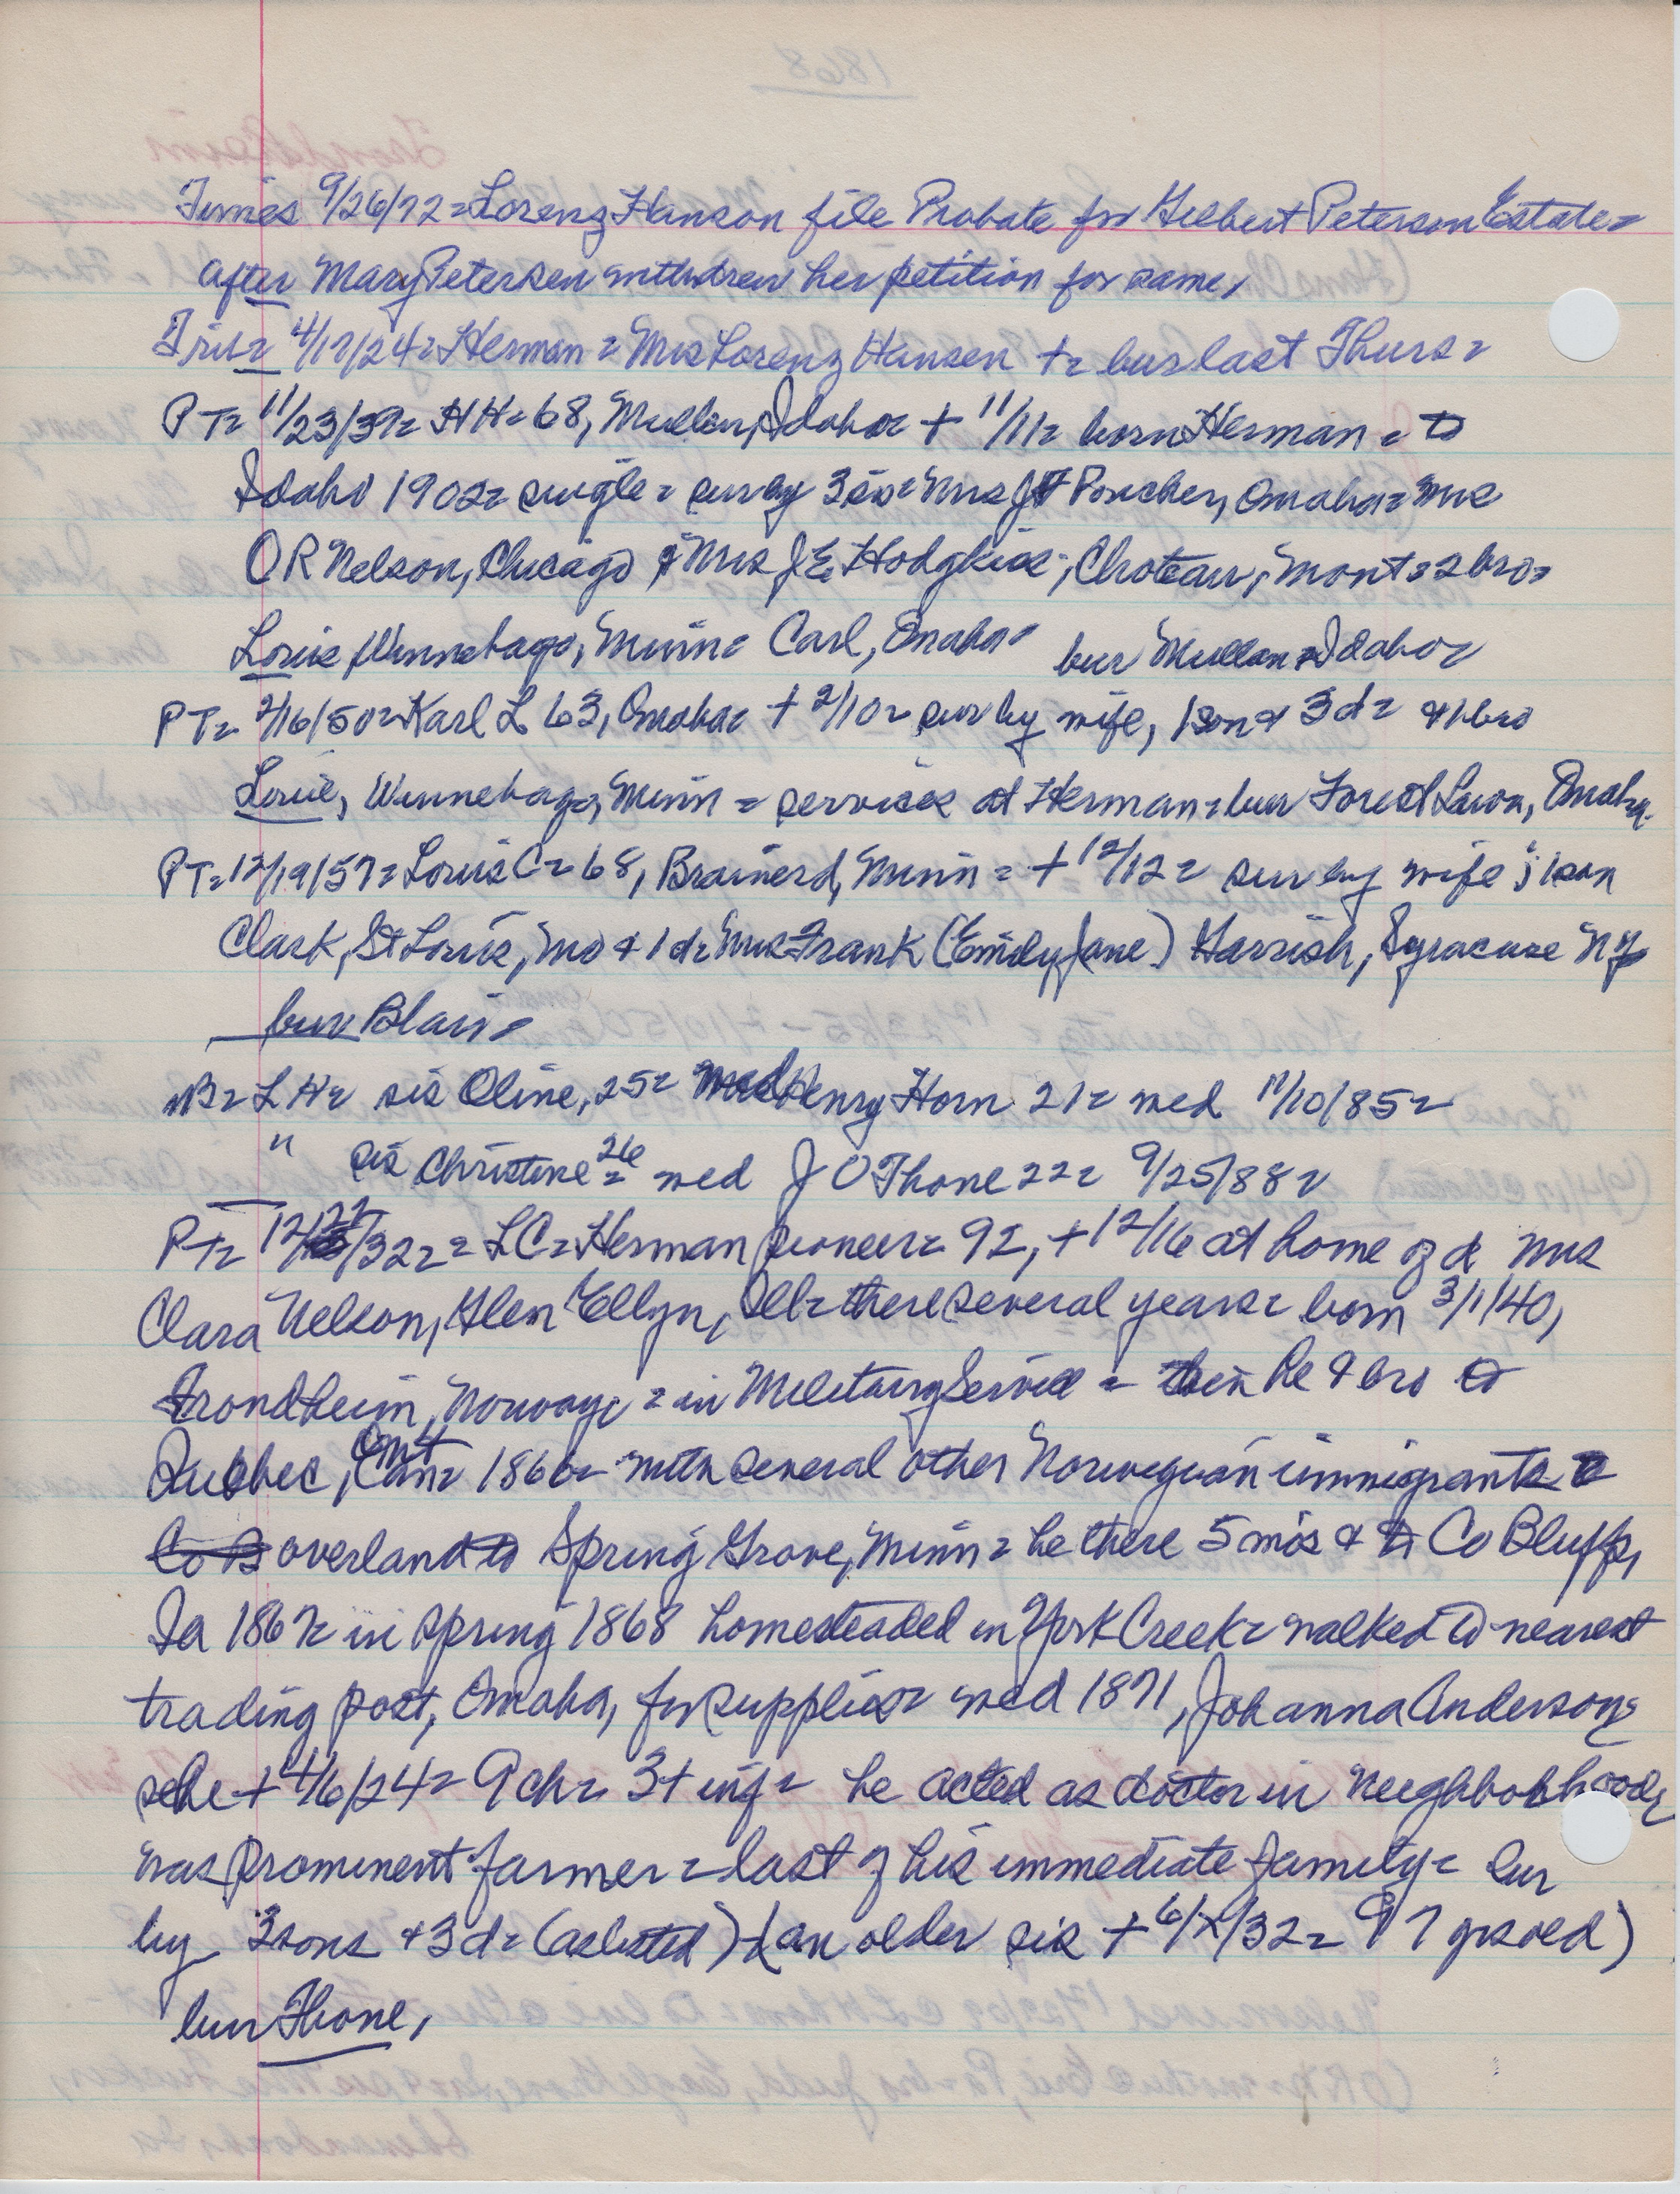 Times 9/26/72 = Lorenz Hanson file Probate for Gilbert Peterson Estate =
after Mary Petersen withdrew her petition for same,
Trib = 4/17/24 = Herman = Mrs Lorenz Hansen + = bur last Thurs =
PT = 11/23/39 = HH = 68, Mullan, Idaho = + 11/11 = born Herman = to
Idaho 1902 = single = sur by 3 sis = Mrs J Poucher, Omaha = Mrs
OR Nelson, Chicago & Mrs J E Hodgkiss, Choteau, Mont = 2 bro =
Louis Winnebago, Minn = Carl, Omaha = bur Mullan = Idaho =
PT = 2/16/50 = Karl L 63, Omaha = + 2/10 = sur by wife, 1 son & 3 d = & 1 bro
Louie, Winnebago, Minn = services at Herman = bur Forest Lawn, Omaha
PT = 12/19/57 = Louis C = 68, Brainerd, Minn = + 12/12 = sur by wife ; 1 son
Clark, St Louis, Mo & 1 d = Mrs Frank (Emily Jane) Harrish, Syracuse NY
bur Blair =
NB = L H = sis Oline, 25 = Henry Horn 21 = wed 11/10/85 =
" sis Christine 26 = wed J O Thone 22 = 9/25/88 =
PT = 12/22/32 = = LC = Herman pioneer = 92, + 12/16 at home of d Mrs
Clara Nelson, Glen Ellyn, Ill = there several years = born 3/1/40,
Trondheim, Norway = in Military Service = then he & bro to
Quebec, Ont Can = 1866 = with several other Norwegian immigrants
Co B overland to Spring Grove, Minn = he there 5 mos & to Co Bluffs,
Ia 1867 = in spring 1868 homesteaded in York Creek = walked to nearest
trading post, Omaha, for supplies = wed 1871, Johanna Anderson =
she + 4/6/24 = 9 ch = 3 + inf = he acted as doctor in neighborhood =
was prominent farmer = last of his immediate family = sur
by 3 sons & 3 d = (as listed) (an older sis + 6/x/32 = 97 yrs old)
bur Thone,